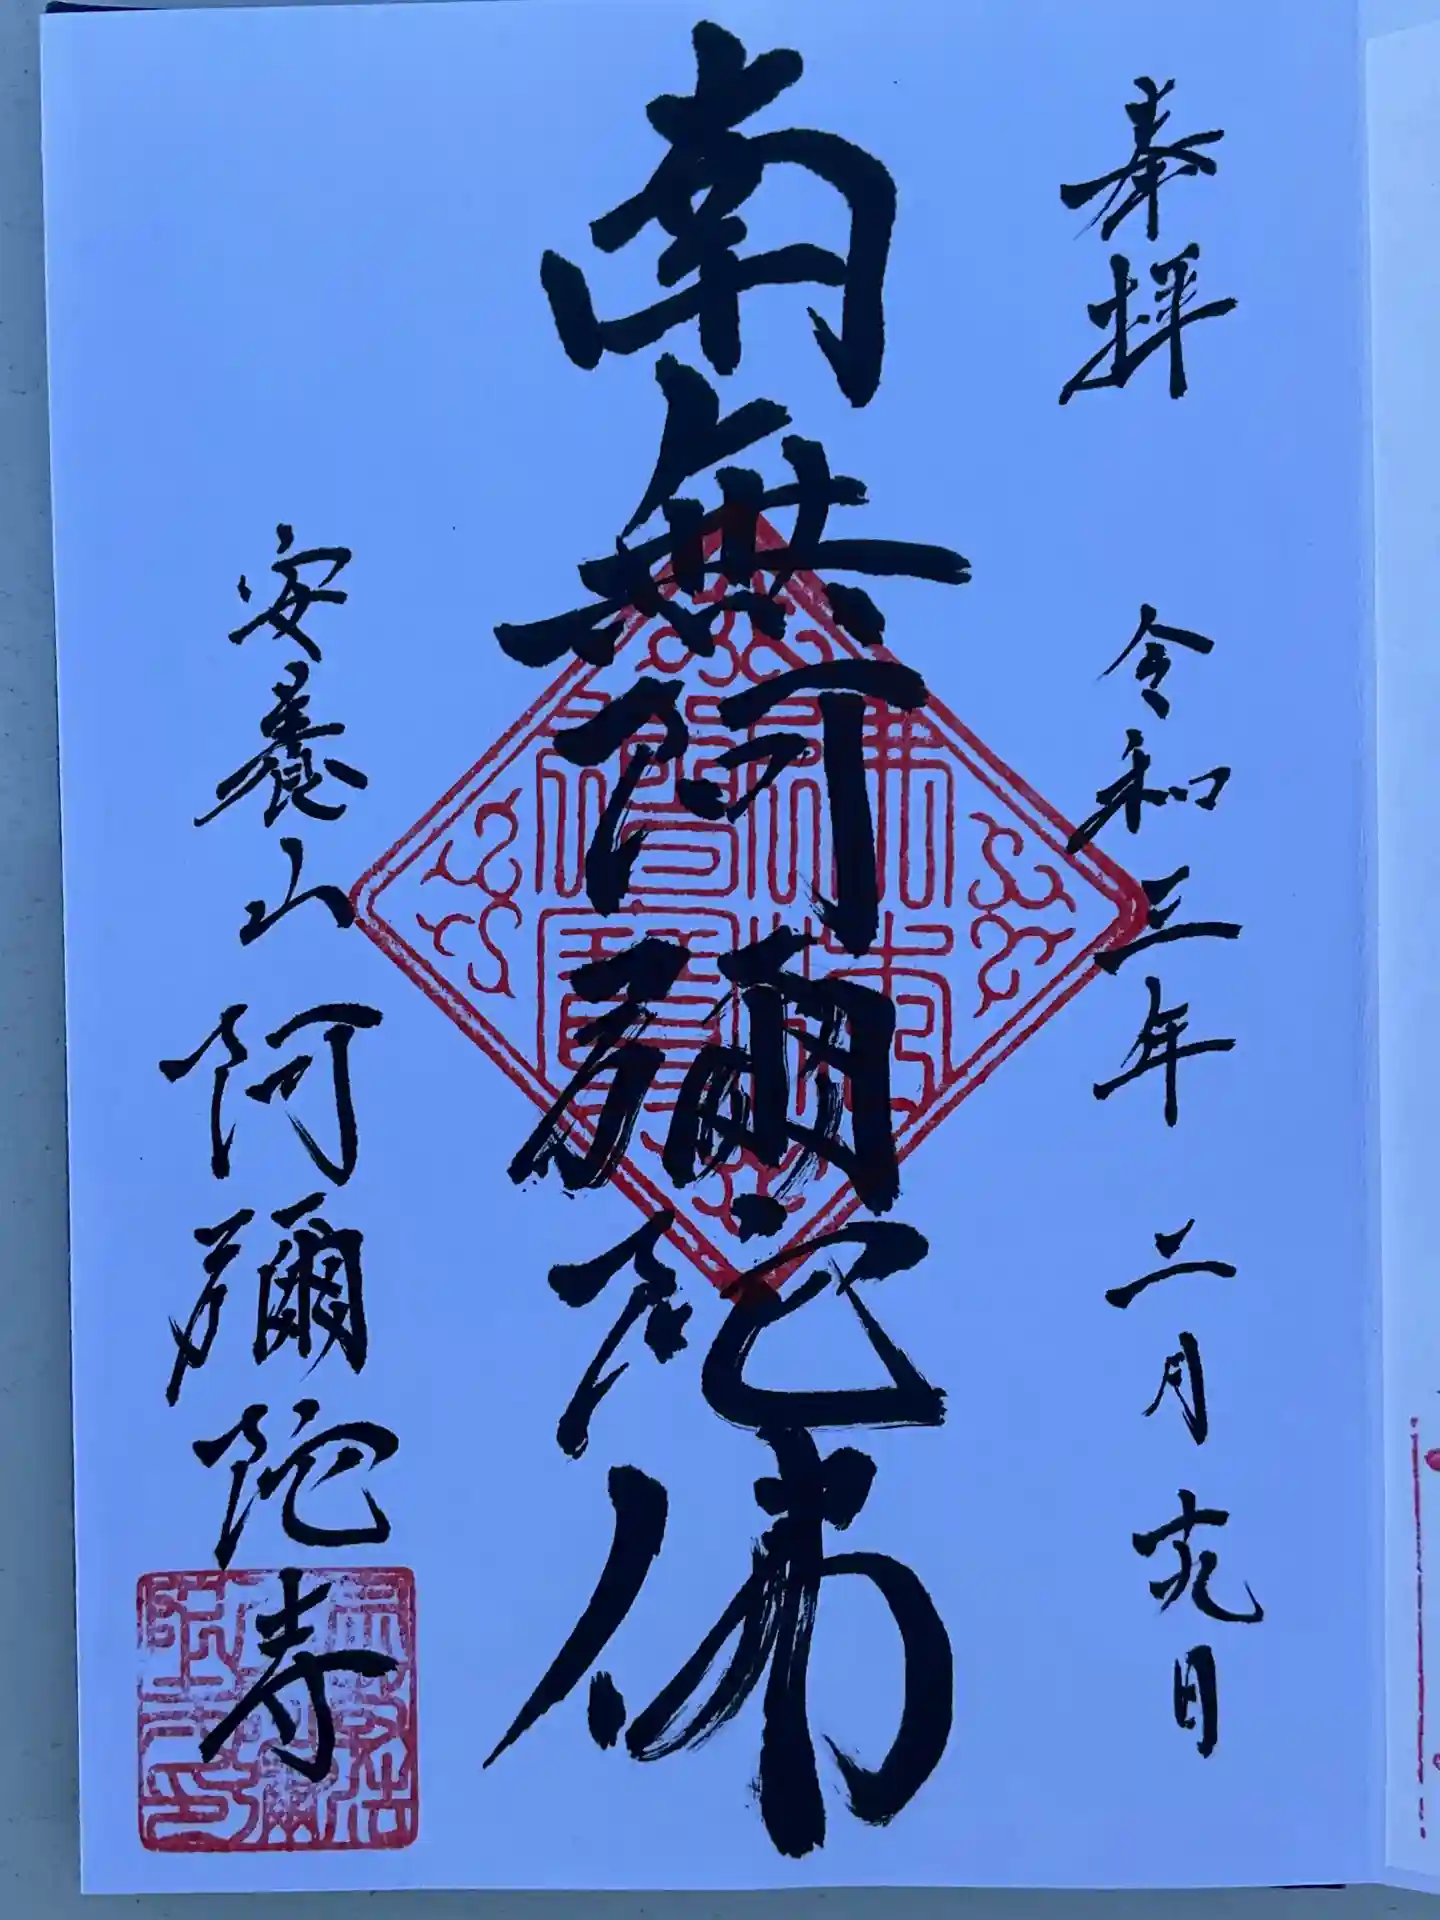 奉拝 令和三年 二月 十九日
南無阿彌陀佛
安養山 阿彌陀寺
佛法僧寶